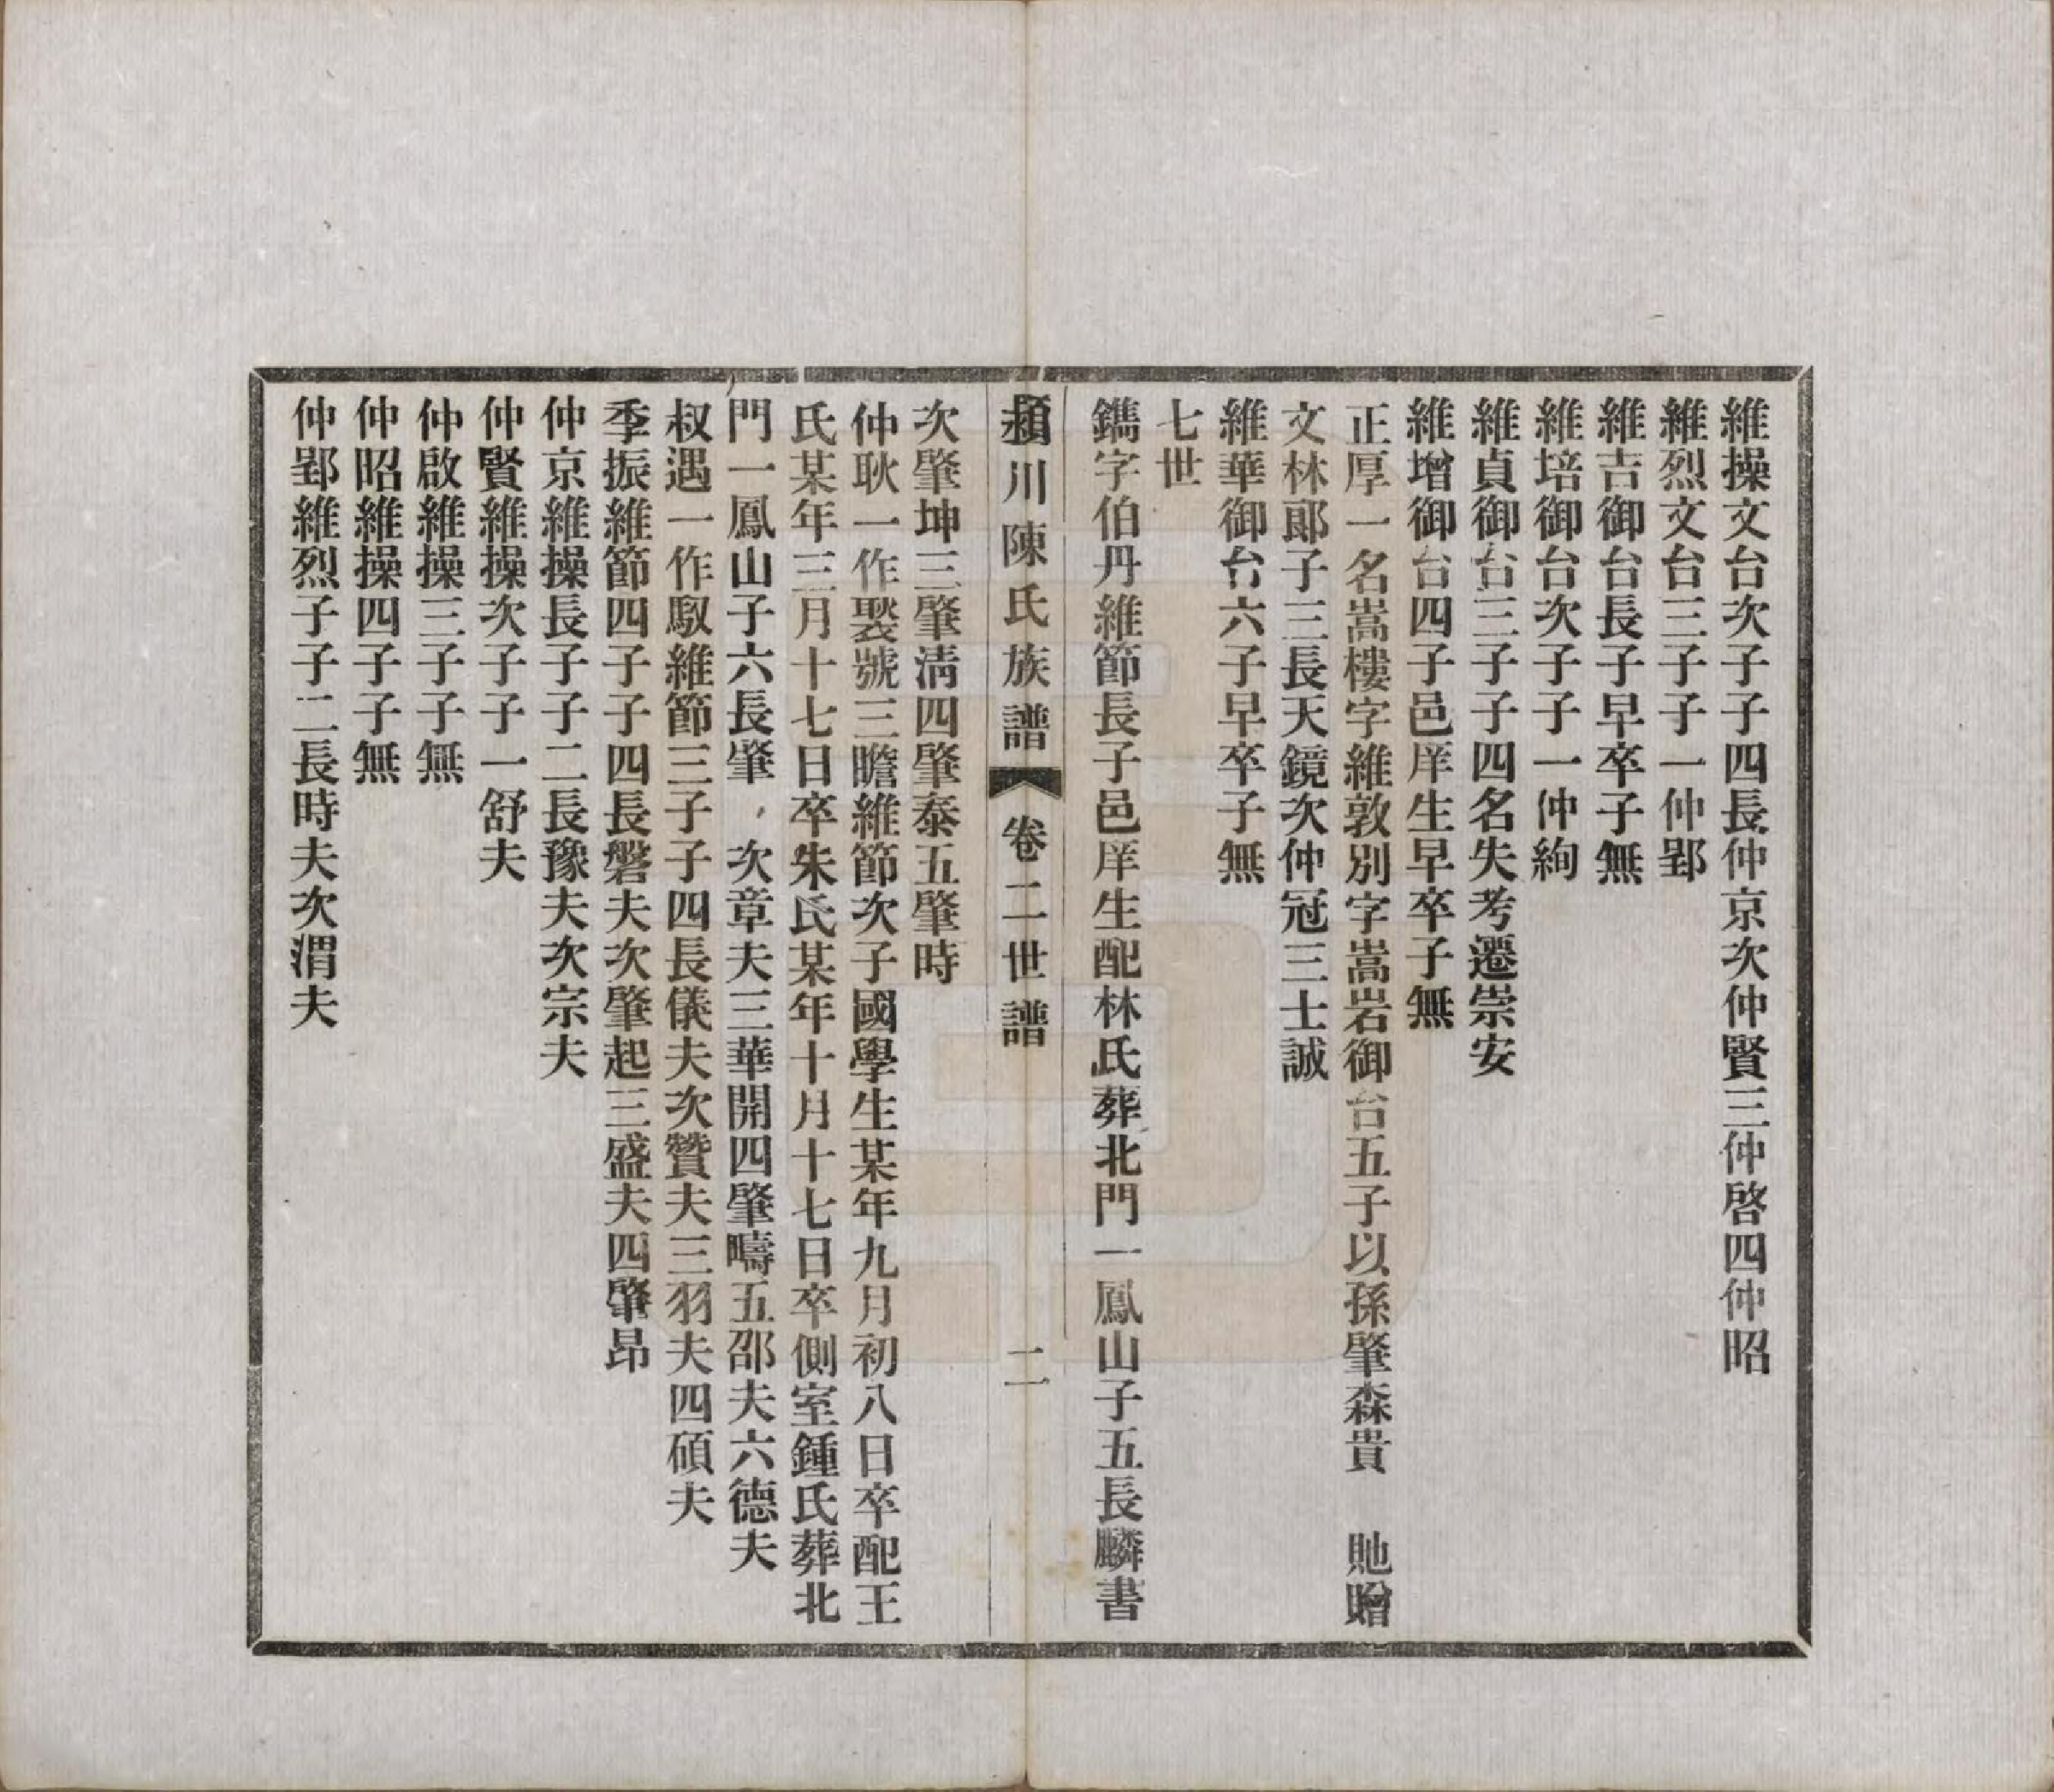 維操文台次子子四長仲京次仲賢三仲啓四仲昭
維烈文台三子子一仲郢
維吉御台長子早卒子無
維培御台次子子一仲絢
維貞御台三子子四名失考遷崇安
維增御台四子邑庠生早卒子無
正厚一名嵩樓字維敦別字嵩岩御台五子以孫肇森貴　貤贈
文林郎子三長天鏡次仲冠三士誠
維華御台六子早卒子無
七世
鐫字伯丹維節長子邑庠生配林氏葬北門一鳳山子五長麟書
潁川陳氏族譜　卷二世譜　二
次肇坤三肇清四肇泰五肇時
仲耿一作褧號三瞻維節次子國學生某年九月初八日卒配王
氏某年三月十七日卒朱氏某年十月十七日卒側室鍾氏葬北
門一鳳山子六長肇　次章夫三華開四肇疇五邵夫六德夫
叔遇一作馭維節三子子四長儀夫次贊夫三羽夫四碩夫
季振維節四子子四長磐夫次肇起三盛夫四肇昂
仲京維操長子子二長豫夫次宗夫
仲賢維操次子子一舒夫
仲啟維操三子子無
仲昭維操四子子無
仲郢維烈子子二長時夫次渭夫